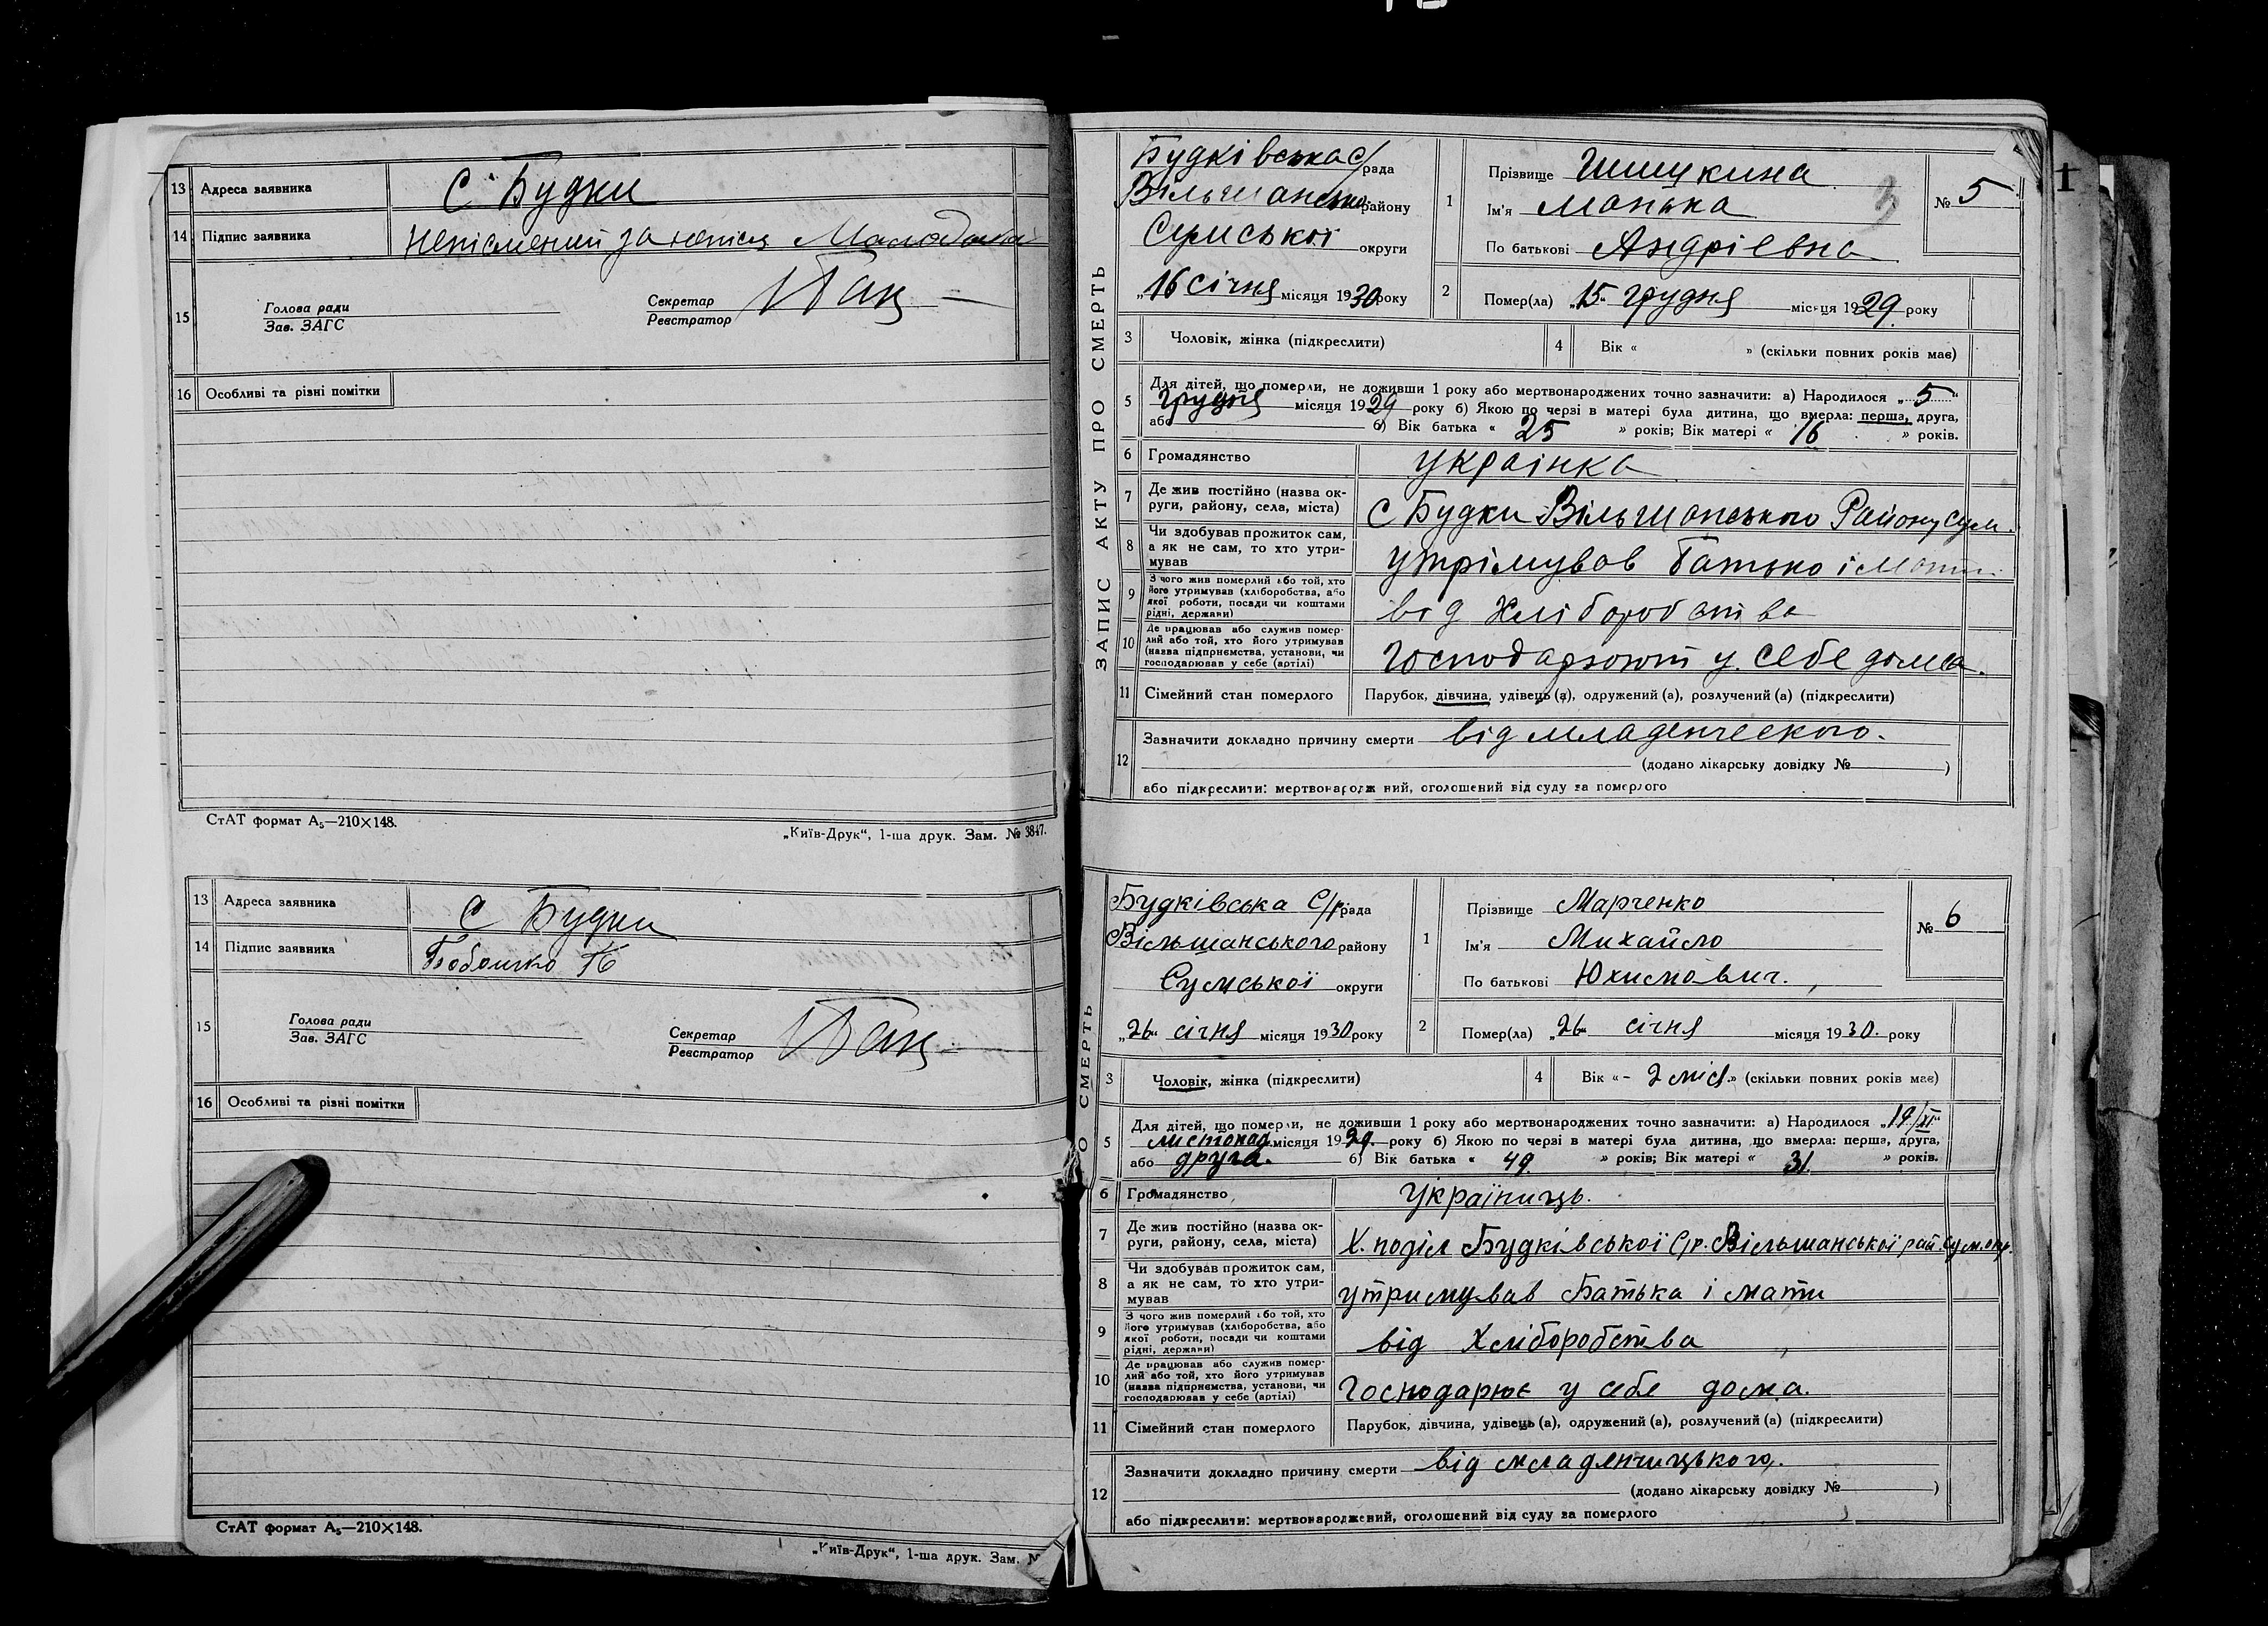 13 Адреса заявника С Будки
14 Підпис заявника Неписмений за
15 Голова ради
Зав. ЗАГС
Секретар
Реєстратор
16 Особливі та різні помітки
СтАТ формат А₅—210×148.
„Київ-Друк“, 1-ша друк. Зам. № 3847.
13 Адреса заявника С Будки
14 Підпис заявника
15 Голова ради
Зав. ЗАГС
Секретар
Реєстратор
16 Особливі та різні помітки
СтАТ формат А₅—210×148.
„Київ-Друк“, 1-ша друк. Зам. №
ЗАПИС АКТУ ПРО СМЕРТЬ
Будківська С/рада
Вільшансько району
Сумської округи
„16 січня місяця 1930 року
1 Прізвище Шишукина
Ім'я Манька
По батькові Андріевна
№ 5
2 Помер(ла) „15“ грудня місяця 1929 року
3 Чоловік, жінка (підкреслити)
4 Вік « » (скільки повних років має)
5 Для дітей, що померли, не доживши 1 року або мертвонароджених точно зазначити: а) Народилося „5“
грудня місяця 1929 року б) Якою по черзі в матері була дитина, що вмерла: перша, друга,
або б) Вік батька « 25 » років; Вік матері « 16 » років.
6 Громадянство українка
7 Де жив постійно (назва округи, району, села, міста) с Будки Вільшанського Району Сум.
8 Чи здобував прожиток сам, а як не сам, то хто утримував утрімував батько і мати
9 З чого жив померлий або той, хто його утримував (хліборобства, або якої роботи, посади чи коштами рідні, держави) від Хліборобства
10 Де працював або служив померлий або той, хто його утримував (назва підприємства, установи, чи господарював у себе (артілі) господарюют у себе дома.
11 Сімейний стан померлого Парубок, дівчина, удівець (а), одружений (а), розлучений (а) (підкреслити)
12 Зазначити докладно причину смерти від младенческого.
(додано лікарську довідку № )
або підкреслити: мертвонароджений, оголошений від суду за померлого
О СМЕРТЬ
Будківська С/р рада
Вільшанського району
Сумської округи
„26“ січня місяця 1930 року
1 Прізвище Марченко
Ім'я Михайло
По батькові Юхимович.
№ 6
2 Помер(ла) „26“ січня місяця 1930. року
3 Чоловік, жінка (підкреслити)
4 Вік «- 2 міся.» (скільки повних років має)
5 Для дітей, що померли, не доживши 1 року або мертвонароджених точно зазначити: а) Народилося „19/XI“
листопад місяця 1929. року б) Якою по черзі в матері була дитина, що вмерла: перша, друга,
або друга. б) Вік батька « 49. » років; Вік матері « 31. » років.
6 Громадянство українець.
7 Де жив постійно (назва округи, району, села, міста) Х. поділ Будківської С/р. Вільшанської рай. Сум. окр.
8 Чи здобував прожиток сам, а як не сам, то хто утримував утримував Батька і мати
9 З чого жив померлий або той, хто його утримував (хліборобства, або якої роботи, посади чи коштами рідні, держави) від Хліборобства
10 Де працював або служив померлий або той, хто його утримував (назва підприємства, установи, чи господарював у себе (артілі) господарює у себе дома.
11 Сімейний стан померлого Парубок, дівчина, удівець (а), одружений (а), розлучений (а) (підкреслити)
12 Зазначити докладно причину смерти від младенчицького.
(додано лікарську довідку № )
або підкреслити: мертвонароджений, оголошений від суду за померлого